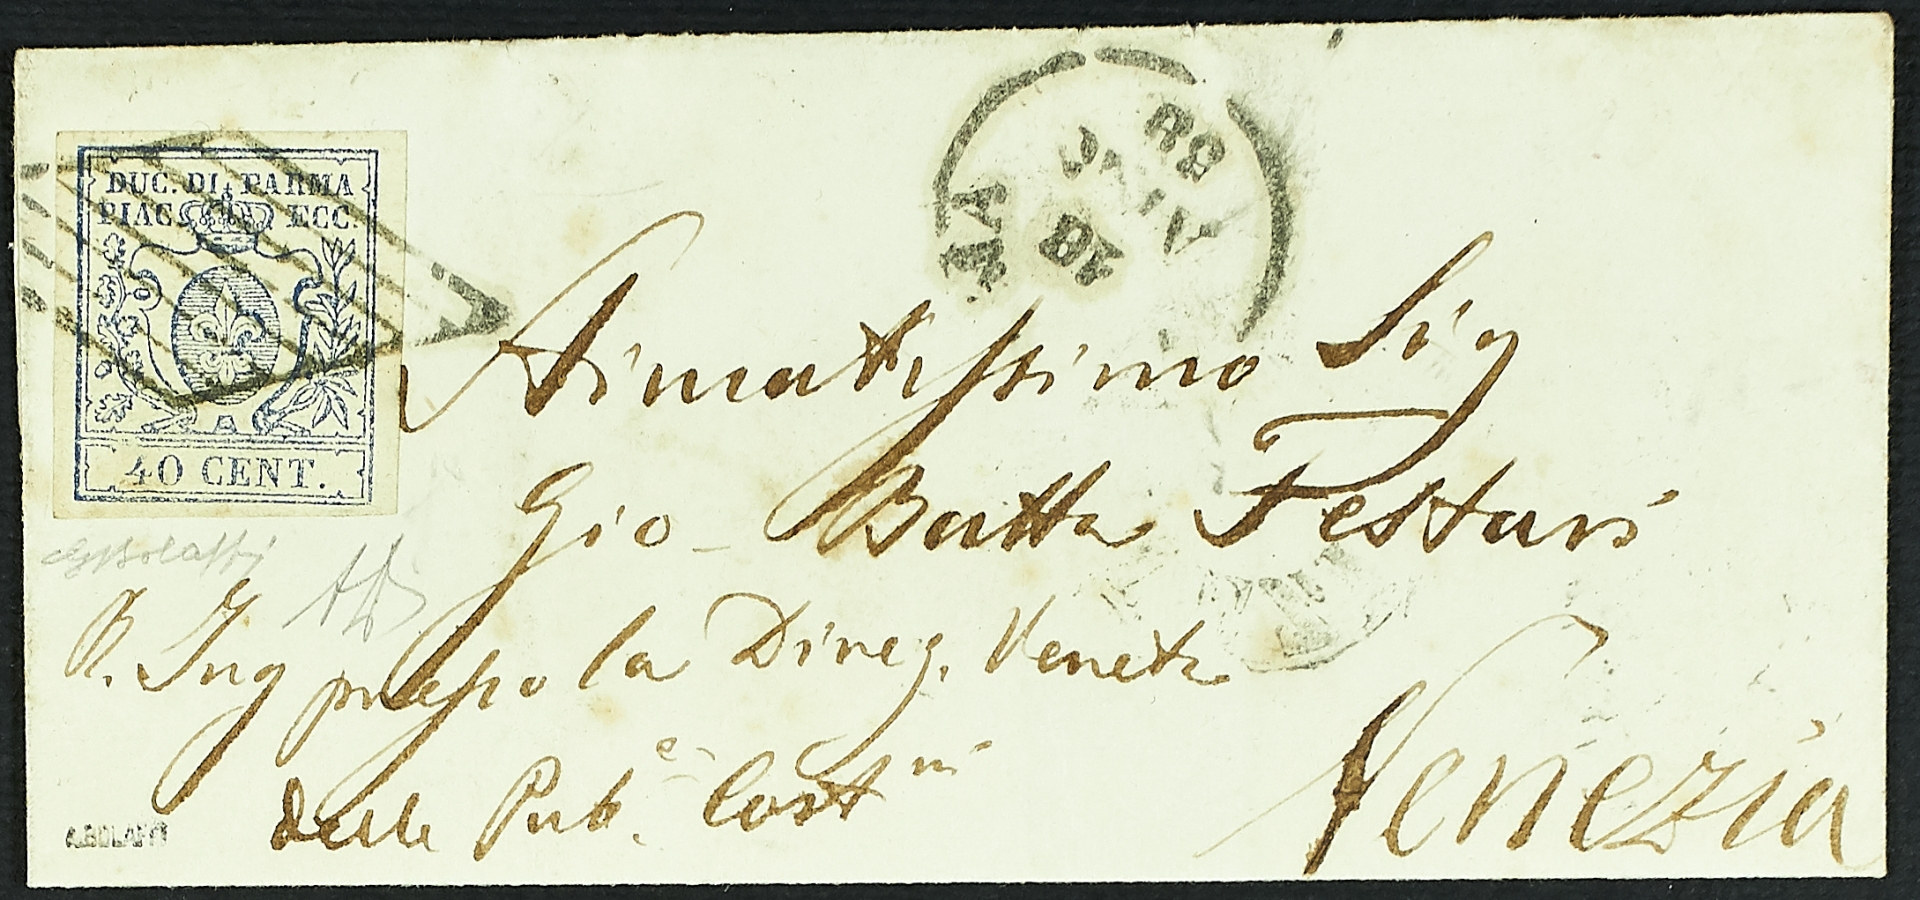 DUC. DI PARMA
PIAC. ECC.
40 CENT.
Stimatissimo Sig
Gio Batta Festari
R. Ing presso la Direz. Veneta
delle Pub.e Costni
Venezia
A.BOLAFFI